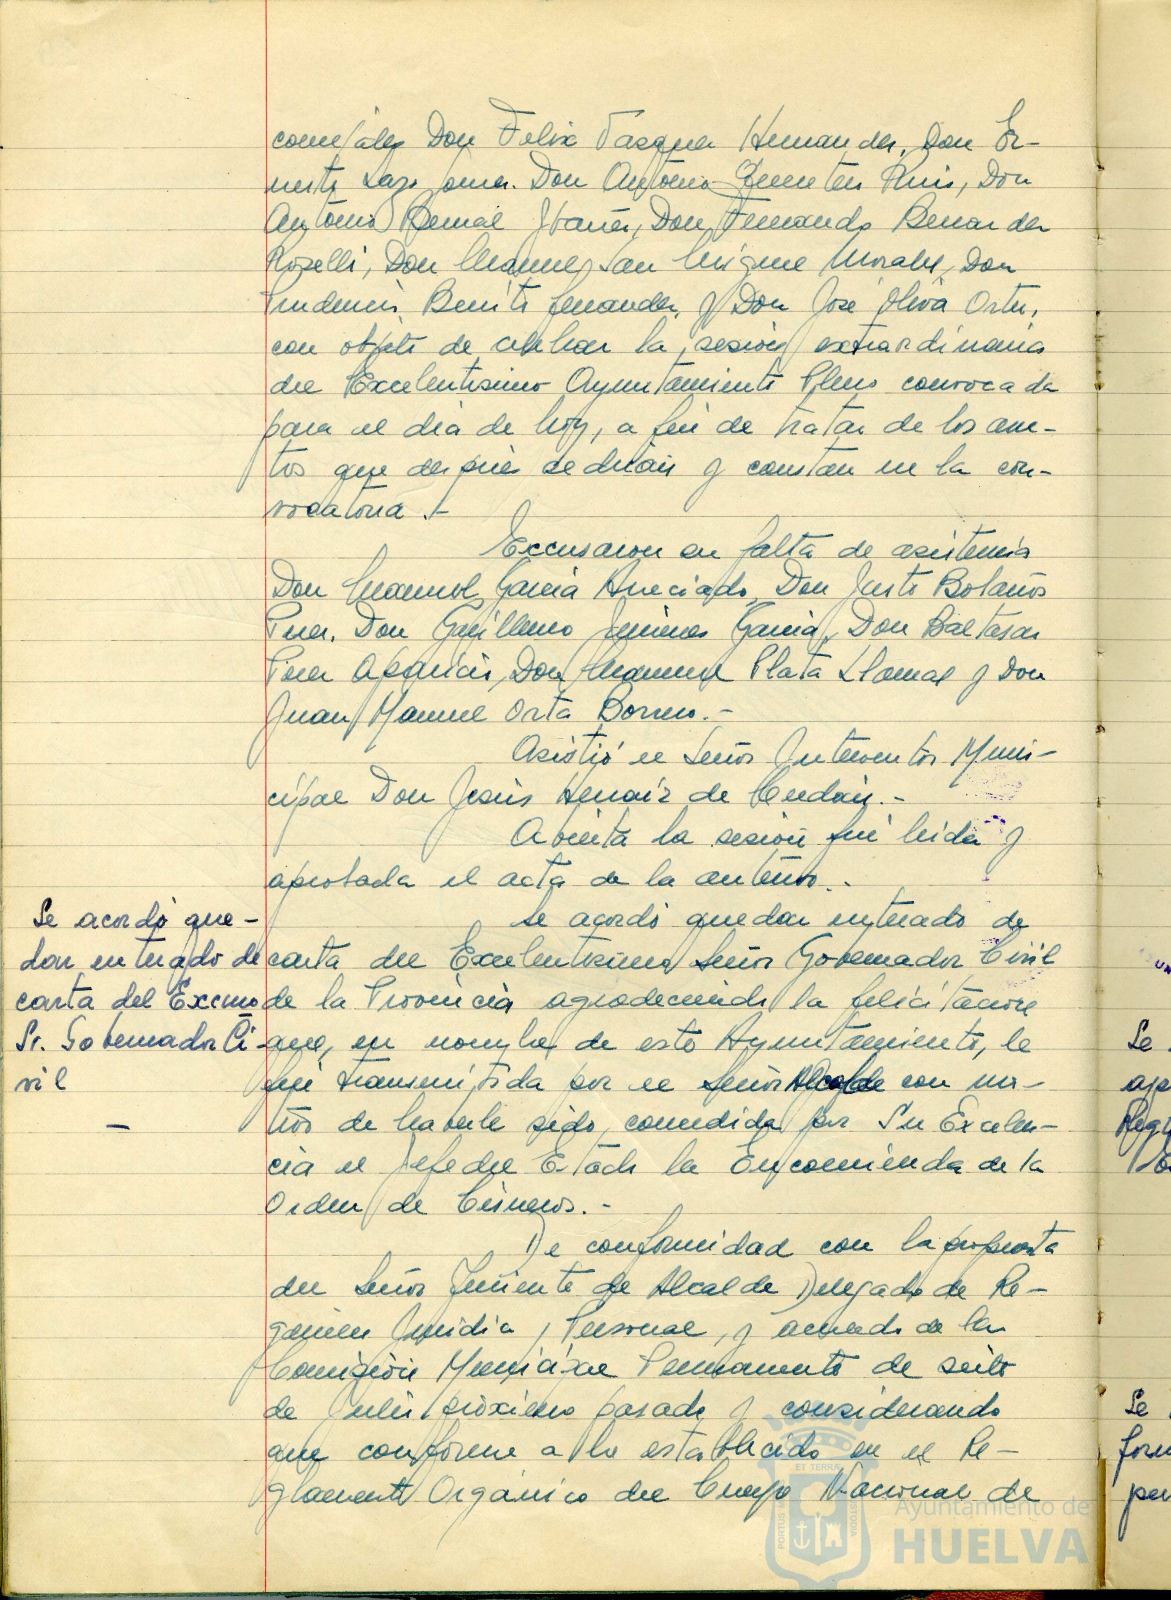 concejales Don Felix Vazquez Hernandez, Don Er-
nesto Lazo Lopez, Don Antonio Ruiz, Don
Antonio Bernal Ibañez, Don Fernando Bernardez
Roselli, Don Manuel San Miguel Morales, Don
Prudencio Benito Fernandez, y Don José Oliva Ortiz,
con objeto de celebrar la sesión extraordinaria
del Excelentísimo Ayuntamiento Pleno convocada
para el día de hoy, a fin de tratar de los asun-
tos que después se dirán y constan en la con-
vocatoria.-
Excusaron su falta de asistencia
Don Manuel Garcia Don Justo Bolaños
Perez, Don Guillermo Jimenez Garcia, Don Baltasar
Perez Aparicio, Don Manuel Plata Llamas y Don
Juan Manuel Orta Borrero.-
Asistió el Señor Interventor Muni-
cipal Don Jesús Henaiz de
Abierta la sesión fué leida y
aprobada el acta de la anterior.-
Se acordó que-
dar enterado de
carta del Excmo
Sr. Gobernador Ci-
vil
-
Se acordó quedar enterado de
carta del Excelentísimo Señor Gobernador Civil
de la Provincia agradeciendo la felicitación
que, en nombre de este Ayuntamiento, le
fué transmitida por el Señor Alcalde con mo-
tivo de haberle sido concedida por Su Excelen-
cia el Jefe del Estado la Encomienda de la
Orden de Cisneros.-
De conformidad con la propuesta
del Señor Teniente de Alcalde Delegado de Re-
gimen Juridico, Personal, y acuerdo de la
Comisión Municipal Permanente de siete
de Julio próximo pasado y considerando
que conforme a lo establecido en el Re-
glamento Orgánico del Cuerpo Nacional de
Se
Se
Ayuntamiento de
HUELVA